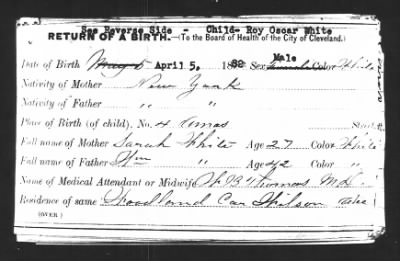 See Reverse Side - Child- Roy Oscar White
RETURN OF A BIRTH.—(To the Board of Health of the City of Cleveland.)
Date of Birth May 5 April 5, 1882 Sex Female Male Color White
Nativity of Mother New York
Nativity of Father " "
Place of Birth (of child), No. 4 Street
Full name of Mother Sarah White Age 27 Color White
Full name of Father Wm " Age 42 Color "
Name of Medical Attendant or Midwife Thomas M.D.
Residence of same Woodland Cor
(OVER)